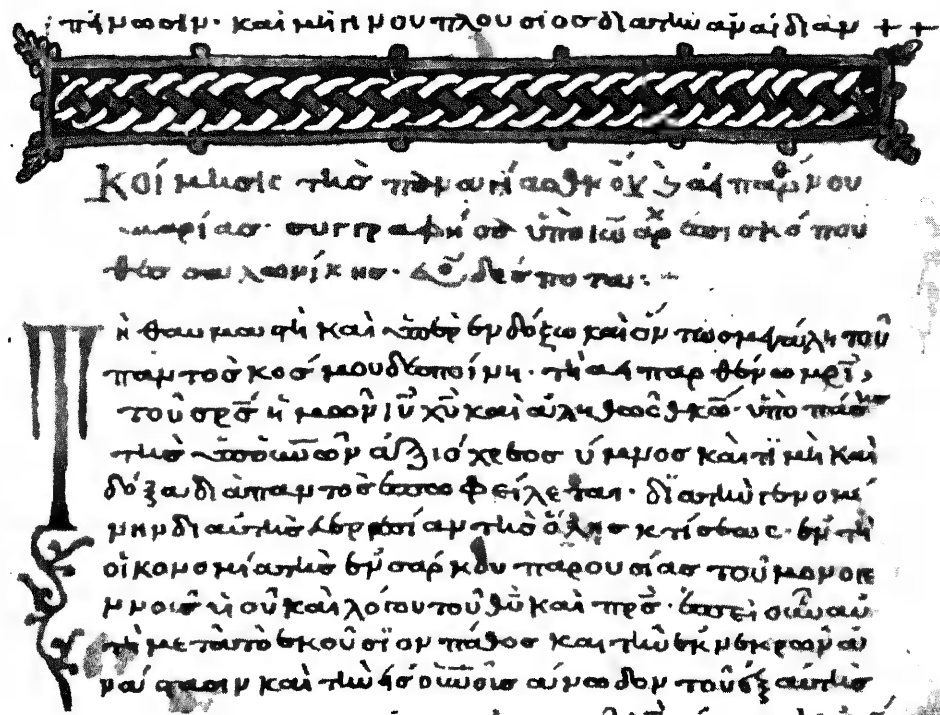 πήνωσιν· καὶ μὴ γίνου πλούσιος διὰ τὴν ἀναίδιαν ++
Κοίμησις τῆς παναγίας θκου ϗ ἀειπαρθένου
μαρίας· συγγραφείσα ὑπὸ ιω ἀρχ ἐπισκόπου
θεσσαλωνίκης· δέσποτα:
Τῆ θαυμαστῆ καὶ ὑπερενδόξω καὶ ὄντως μεγάλη τοῦ
παντὸς κόσμου δεσποίνη· τῆ ἀειπαρθένω μρι,
τοῦ σρς ἡμῶν ιυ χυ καὶ ἀληθῶς θκω· ὑπὸ πάσης
τῆς ὑπὸ οὐνον ἀξιόχρεος ὕμνος καὶ τϊμὴ καὶ
δόξα διὰ παντὸς ἐποφείλεται· δϊὰ τὴν γενομέ
νην δι αὐτῆς εὐεργεσίαν τῆς ὅλης κτίσεως· ἐν τῆ
οἰκονομία τῆς ἐνσάρκου παρουσίας τοῦ μονογε
νους ϋιοῦ καὶ λόγου τοῦ θυ καὶ πρς· ἐπεὶ οὖν αὕ
τη μετὰ τὸ ἑκούσϊον πάθος καὶ τὴν ἐκ νεκρῶν ἀ
νάστασιν καὶ τὴν εἰς οὐνους ἄνοδον τοῦ ἐξ αὐτῆς